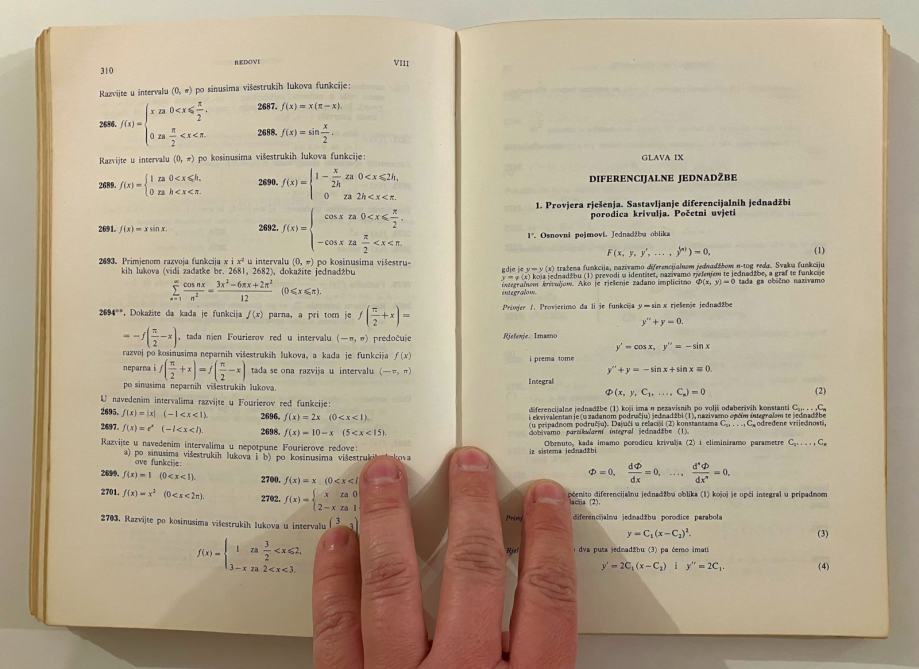 310 REDOVI VIII
Razvijte u intervalu (0, π) po sinusima višestrukih lukova funkcije:
2686. f(x) = { x za 0<x⩽π/2, 0 za π/2<x<π.
2687. f(x)=x(π−x).
2688. f(x)=sin x/2.
Razvijte u intervalu (0, π) po kosinusima višestrukih lukova funkcije:
2689. f(x)= { 1 za 0<x⩽h, 0 za h<x<π.
2690. f(x)= { 1−x/2h za 0<x⩽2h, 0 za 2h<x<π.
2691. f(x)=x sin x.
2692. f(x)= { cos x za 0<x⩽π/2, −cos x za π/2<x<π.
2693. Primjenom razvoja funkcija x i x² u intervalu (0, π) po kosinusima višestru-
kih lukova (vidi zadatke br. 2681, 2682), dokažite jednadžbu
∞ ∑ n=1 cos nx/n² = 3x²−6πx+2π²/12 (0⩽x⩽π).
2694**. Dokažite da kada je funkcija f(x) parna, a pri tom je f(π/2+x)=
=−f(π/2−x), tada njen Fourierov red u intervalu (−π, π) predočuje
razvoj po kosinusima neparnih višestrukih lukova, a kada je funkcija f(x)
neparna i f(π/2+x)=f(π/2−x) tada se ona razvija u intervalu (−π, π)
po sinusima neparnih višestrukih lukova.
U navedenim intervalima razvijte u Fourierov red funkcije:
2695. f(x)=|x| (−1<x<1).
2696. f(x)=2x (0<x<1).
2697. f(x)=eˣ (−l<x<l).
2698. f(x)=10−x (5<x<15).
Razvijte u navedenim intervalima u nepotpune Fourierove redove:
a) po sinusima višestrukih lukova i b) po kosinusima višestrukih lukova
ove funkcije:
2699. f(x)=1 (0<x<1).
2700. f(x)=x (0<x<
2701. f(x)=x² (0<x<2π).
2702. f(x)= { x za 0 2−x za 1
2703. Razvijte po kosinusima višestrukih lukova u intervalu (3 3)
f(x)= { 1 za 3/2<x⩽2, 3−x za 2<x<3.
GLAVA IX
DIFERENCIJALNE JEDNADŽBE
1. Provjera rješenja. Sastavljanje diferencijalnih jednadžbi
porodica krivulja. Početni uvjeti
1°. Osnovni pojmovi. Jednadžbu oblika
F(x, y, y′, ..., y⁽ⁿ⁾)=0, (1)
gdje je y=y(x) tražena funkcija, nazivamo diferencijalnom jednadžbom n-tog reda. Svaku funkciju
y=φ(x) koja jednadžbu (1) prevodi u identitet, nazivamo rješenjem te jednadžbe, a graf te funkcije
integralnom krivuljom. Ako je rješenje zadano implicitno Φ(x, y)=0 tada ga obično nazivamo
integralom.
Primjer 1. Provjerimo da li je funkcija y=sin x rješenje jednadžbe
y″+y=0.
Rješenje. Imamo
y′=cos x, y″=−sin x
i prema tome
y″+y=−sin x+sin x≡0.
Integral
Φ(x, y, C₁, ..., Cₙ)=0 (2)
diferencijalne jednadžbe (1) koji ima n nezavisnih po volji odaberivih konstanti C₁,..., Cₙ
i ekvivalentan je (u zadanom području) jednadžbi (1), nazivamo općim integralom te jednadžbe
(u pripadnom području). Dajući u relaciji (2) konstantama C₁,..., Cₙ određene vrijednosti,
dobivamo partikularni integral jednadžbe (1).
Obrnuto, kada imamo porodicu krivulja (2) i eliminiramo parametre C₁,..., Cₙ
iz sistema jednadžbi
Φ=0, dΦ/dx=0, ..., dⁿΦ/dxⁿ=0,
diferencijalnu jednadžbu oblika (1) kojoj je opći integral u pripadnom
(2).
diferencijalnu jednadžbu porodice parabola
y=C₁(x−C₂)². (3)
dva puta jednadžbu (3) pa ćemo imati
y′=2C₁(x−C₂) i y″=2C₁. (4)